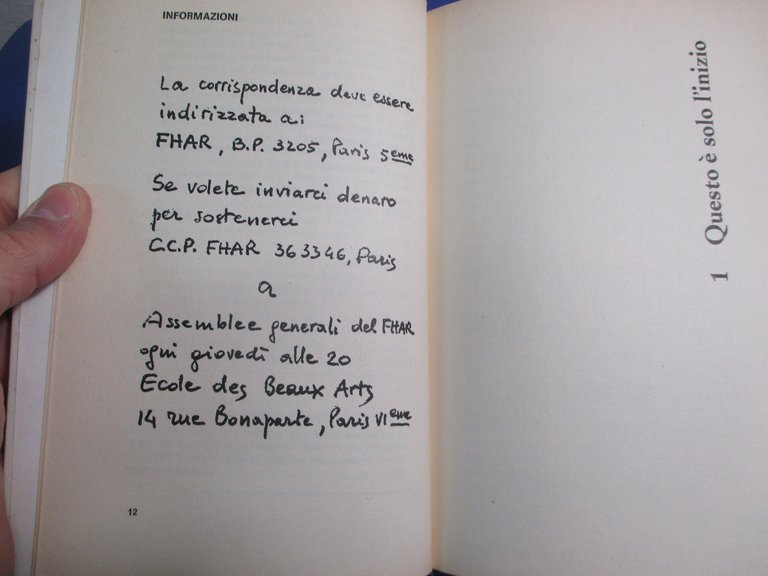 INFORMAZIONI
La corrispondenza deve essere
indirizzata a:
FHAR, B.P. 3205, Paris 5eme
Se volete inviarci denaro
per sostenerci
C.C.P. FHAR 363346, Paris
a
Assemblee generali del FHAR
ogni giovedì alle 20
Ecole des Beaux Arts
14 rue Bonaparte, Paris VIeme
12
1 Questo è solo l'inizio